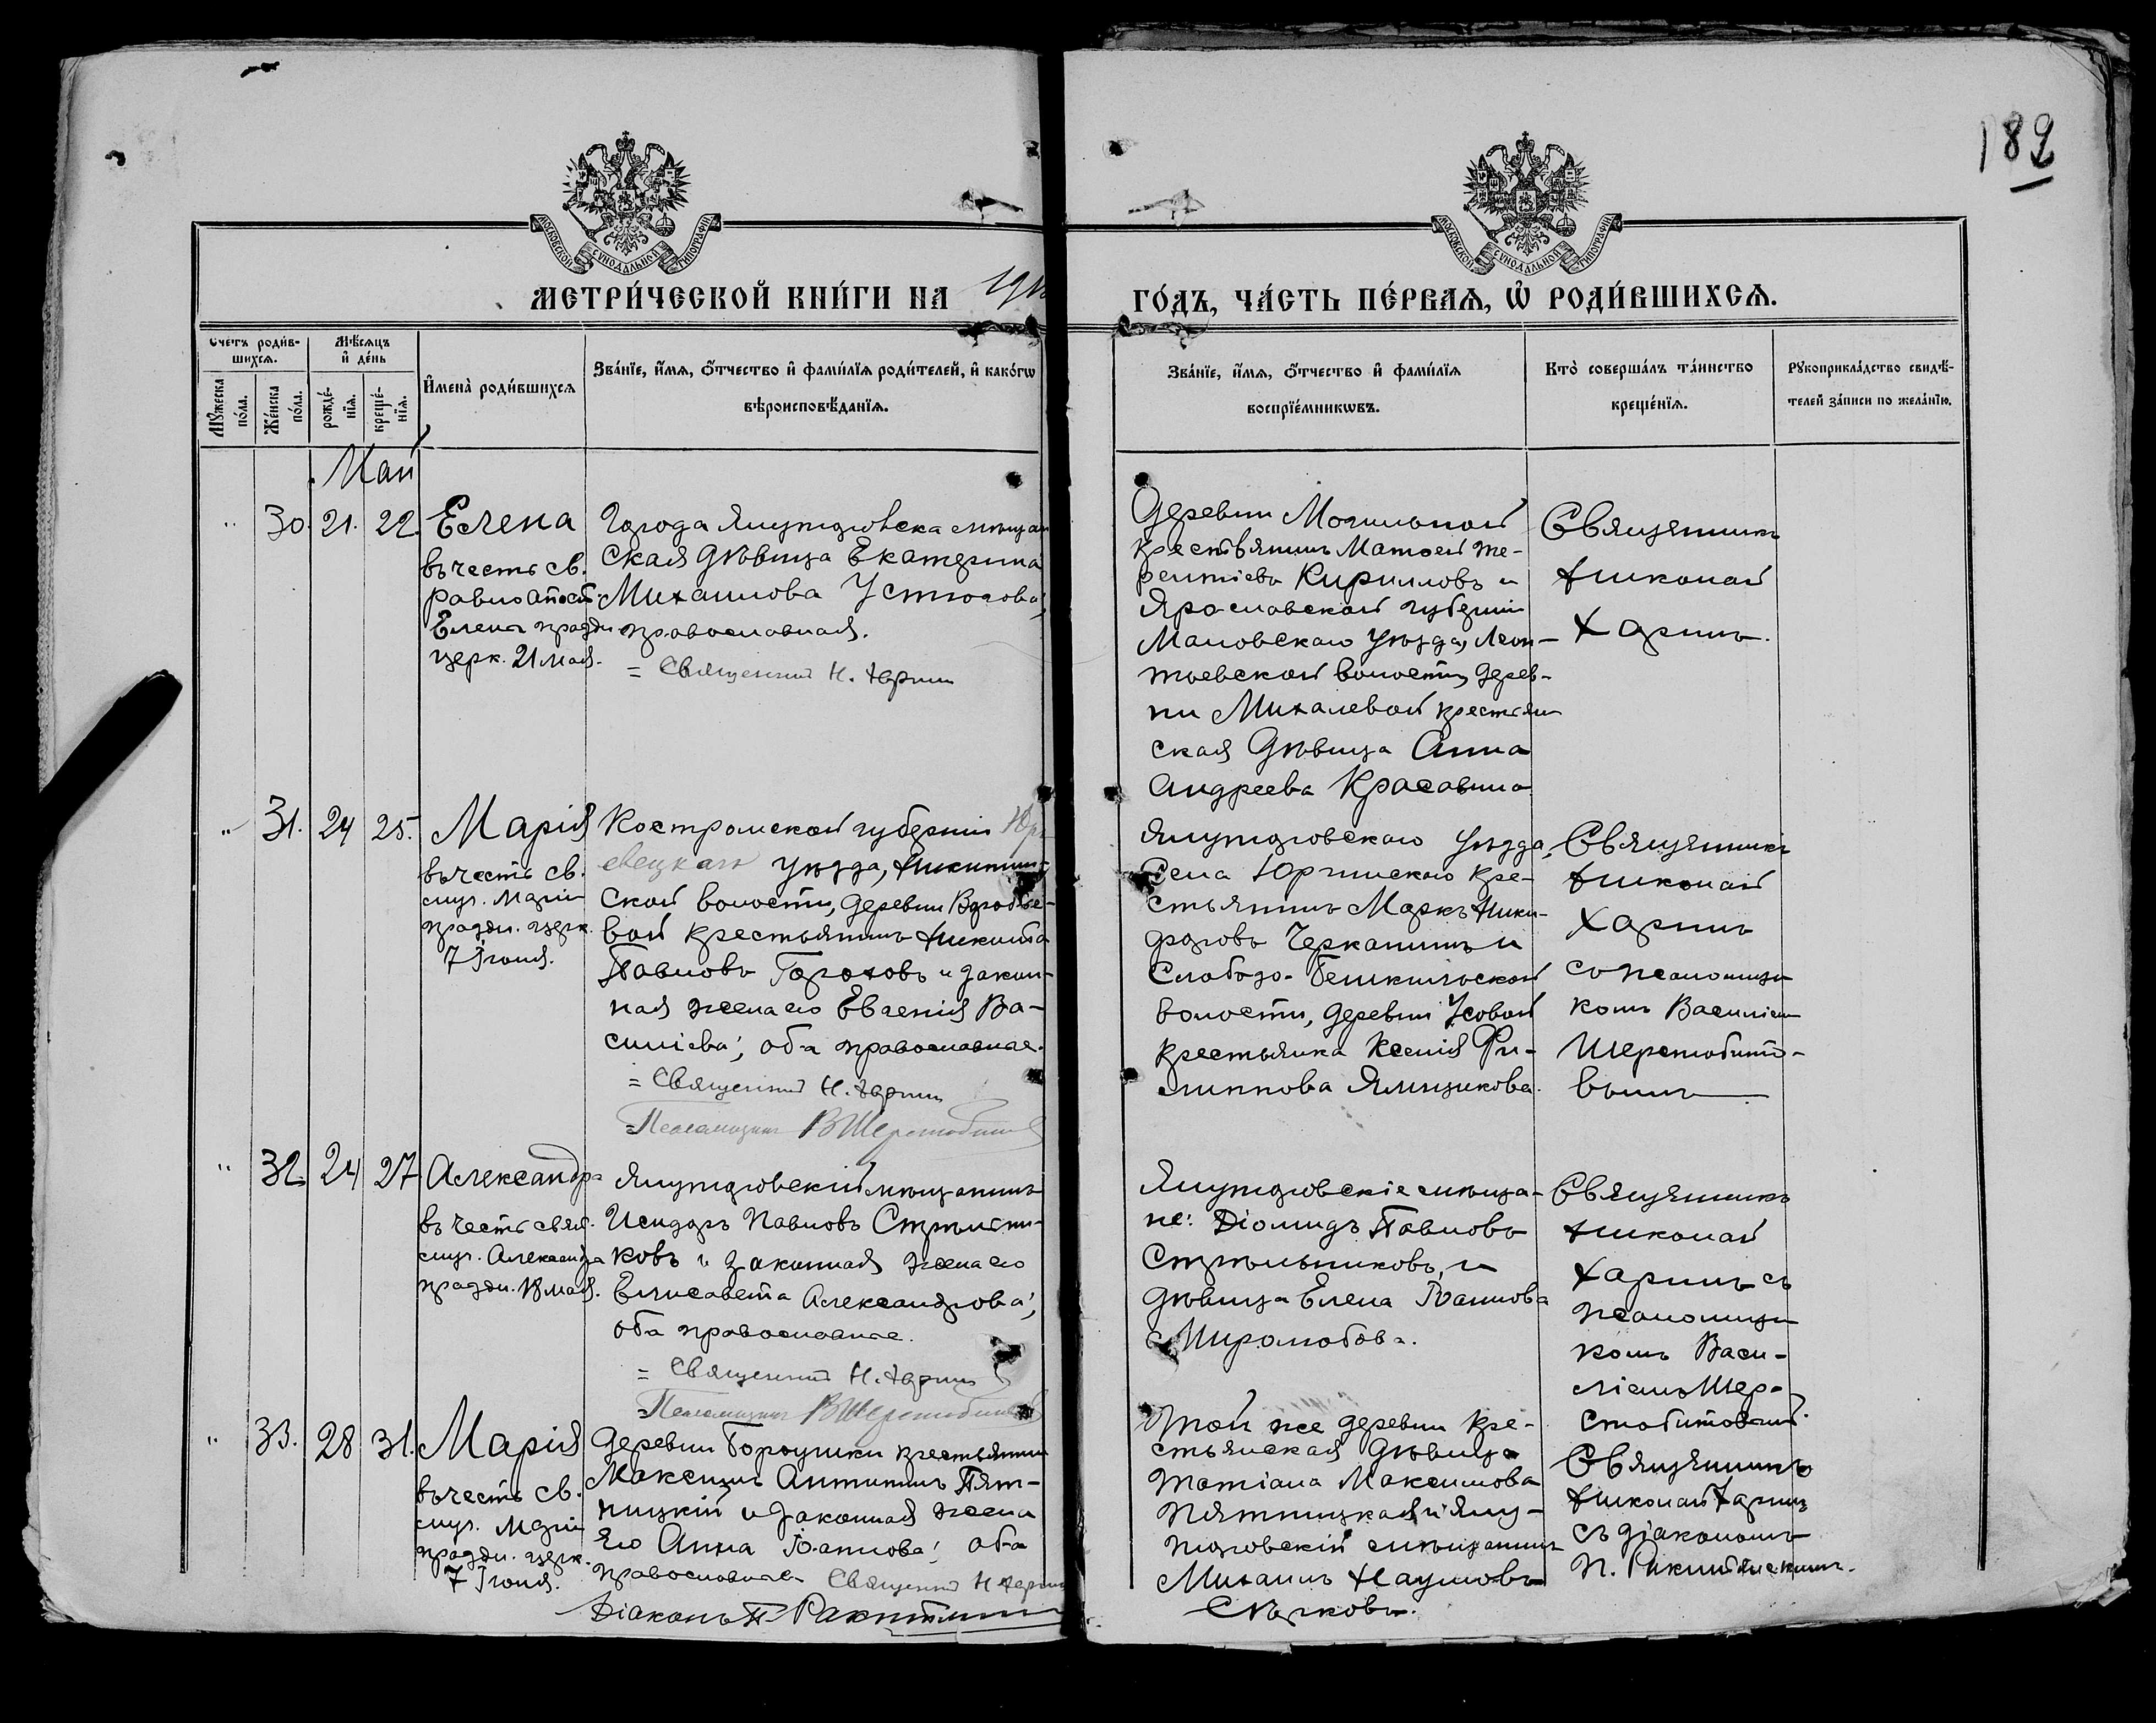 182
МОСКОВСКОЙ СѴНОДАЛЬНОЙ ТИПОГРАФІИ
МОСКОВСКОЙ СѴНОДАЛЬНОЙ ТИПОГРАФІИ
МЕТРИ́ЧЕСКОЙ КНИ́ГИ НА
ГО́ДЪ, ЧА́СТЬ ПЕ́РВАѦ, Ѡ҆ РОДИ́ВШИХСѦ.
Счетъ роди́в-
шихсѧ.
Мѣ́сѧцъ
и҆ де́нь
Мꙋ́жеска
по́ла.
Же́нска
по́ла.
рожде́-
нїѧ.
креще́-
нїѧ.
И҆мена̀ роди́вшихсѧ
Зва́нїе, и҆́мѧ, ѻ҆́тчество и҆ фами́лїѧ роди́телей, и҆ како́гѡ
вѣроисповѣ́данїѧ.
Зва́нїе, и҆́мѧ, ѻ҆́тчество и҆ фами́лїѧ
воспрїе́мникѡвъ.
Кто̀ соверша́лъ та́инство
креще́нїѧ.
Рꙋкоприкла́дство свидѣ́-
телей за́писи по жела́нїю.
Май
" 30. 21. 22.
Елена
въ честь св.
равноапост.
Елены праздн.
церк. 21 мая.
Города Ялуторовска мѣщан
ская дѣвица Екатерина
Михаилова Устюгова,
православная.
= Священникъ Н. Харинъ
Деревни Могильной
крестьянинъ Матѳей Те-
рентіевъ Кирилловъ и
Ярославской губерніи
уѣзда, Леон-
тьевской волости, дерев-
ни Михалевой крестьян
ская дѣвица Анна
Андреева Красавина.
Священникъ
Николай
Харинъ.
" 31. 24 25.
Марія
въ честь св.
муч. Маріи
праздн. церк.
7 Іюня.
Костромской губерніи Юрь
евецкаго уѣзда, Никитин-
ской волости, деревни
вой крестьянинъ Никита
Павловъ Гороховъ и закон-
ная жена его Евгенія Ва-
силіева, оба православные.
= Священникъ Н. Харинъ
= Псаломщикъ В Шерстобитовъ
Ялуторовскаго уѣзда,
села Юргинскаго кре-
стьянинъ Маркъ Ники-
форовъ Черкашинъ и
Слободо-Бешкильской
волости, деревни Усовой
крестьянка Ксенія Фи-
липпова Ямщикова.
Священникъ
Николай
Харинъ
съ псаломщи
комъ Василіемъ
Шерстобито-
вымъ
" 32. 24 27
Александра
въ честь свят.
муч. Александры
праздн. 18 мая.
Ялуторовскій мѣщанинъ
Исидоръ Павловъ Стрѣльни-
ковъ и законная жена его
Елисавета Александрова,
оба православные.
= Священникъ Н. Харинъ
= Псаломщикъ В Шерстобитовъ
Ялуторовскіе мѣща-
не: Діомидъ Павловъ
Стрѣльниковъ, и
дѣвица Елена Іоаннова
Миролюбова.
Священникъ
Николай
Харинъ съ
псаломщи
комъ Васи-
ліемъ Шер-
стобитовымъ.
" 33. 28 31.
Марія
въ честь св.
муч. Маріи
праздн. церк.
7 Іюня.
Деревни крестьянинъ
Максимъ Антипинъ Пят-
ницкій и законная жена
его Анна Іоаннова, оба
православные Священникъ Н Харинъ
Діаконъ П Ракитинъ
Той же деревни кре-
стьянская дѣвица
Татіана Максимова
Пятницкая и Ялу-
торовскій мѣщанинъ
Михаилъ Наумовъ
Священникъ
Николай Харинъ
съ діакономъ
П.